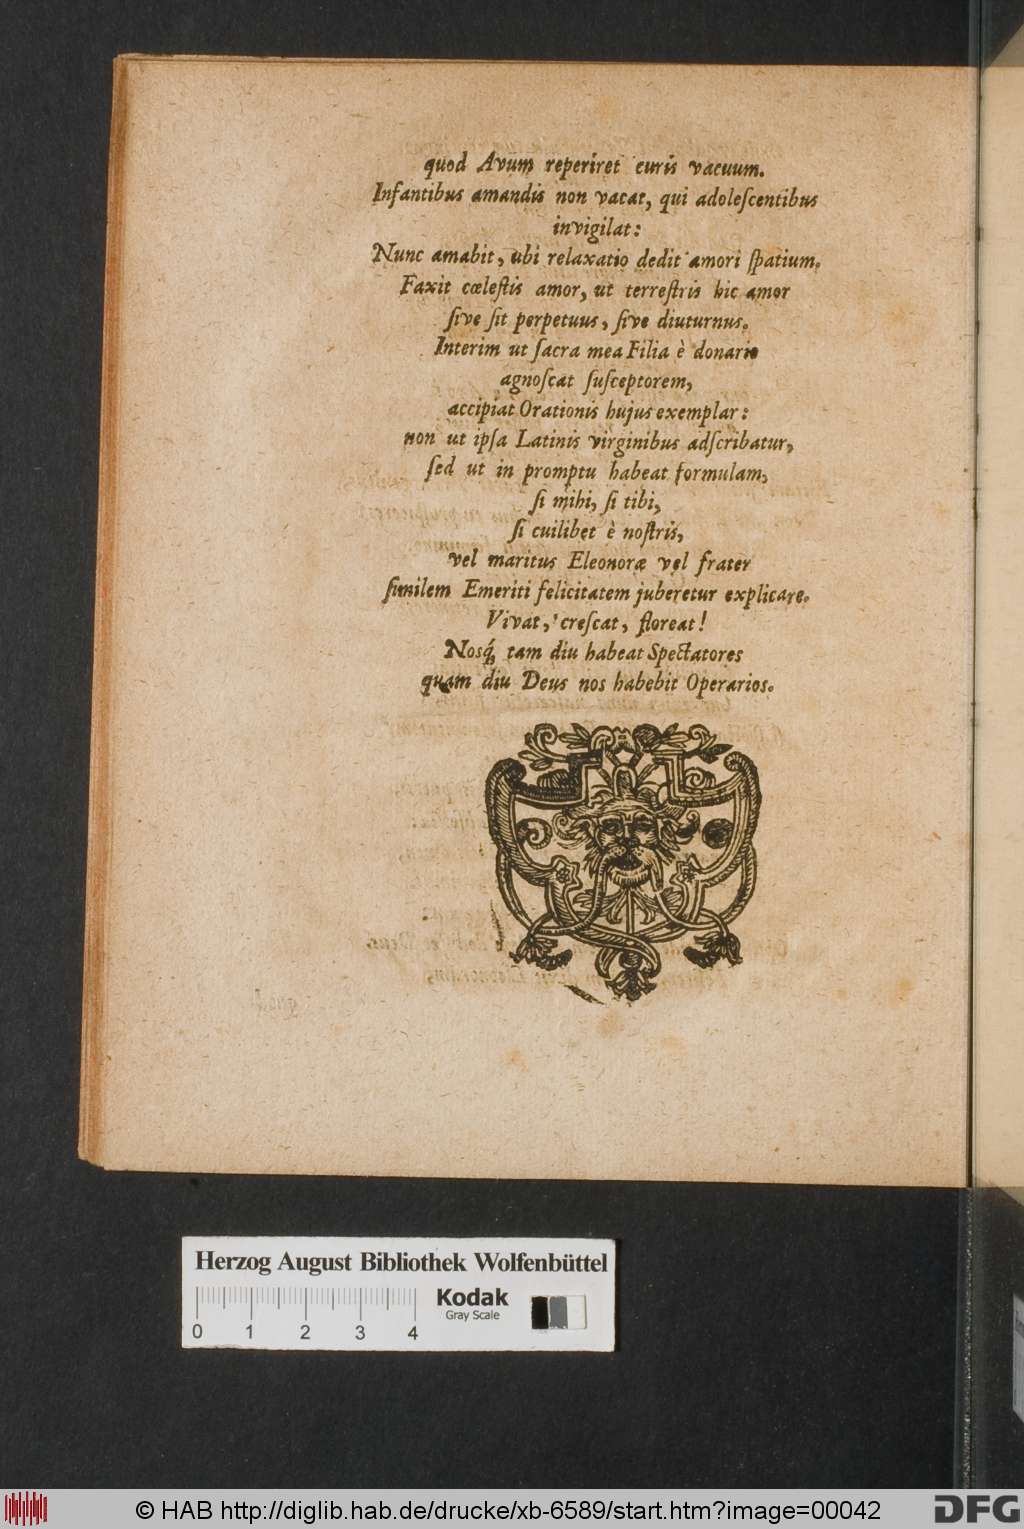 quod Avum reperiret curis vacuum.
Infantibus amandis non vacat, qui adoleſcentibus
invigilat:
Nunc amabit, ubi relaxatio dedit amori ſpatium.
Faxit cœleſtis amor, ut terreſtris hic amor
ſive ſit perpetuus, ſive diuturnus.
Interim ut ſacra mea Filia è donario
agnoſcat ſuſceptorem,
accipiat Orationis hujus exemplar:
non ut ipſa Latinis virginibus adſcribatur,
ſed ut in promptu habeat formulam,
ſi mihi, ſi tibi,
ſi cuilibet è noſtris,
vel maritus Eleonoræ vel frater
ſimilem Emeriti felicitatem juberetur explicare.
Vivat, creſcat, floreat!
Nosq́; tam diu habeat Spectatores
quam diu Deus nos habebit Operarios.
Herzog August Bibliothek Wolfenbüttel
Kodak
Gray Scale
0 1 2 3 4
© HAB http://diglib.hab.de/drucke/xb-6589/start.htm?image=00042
DFG